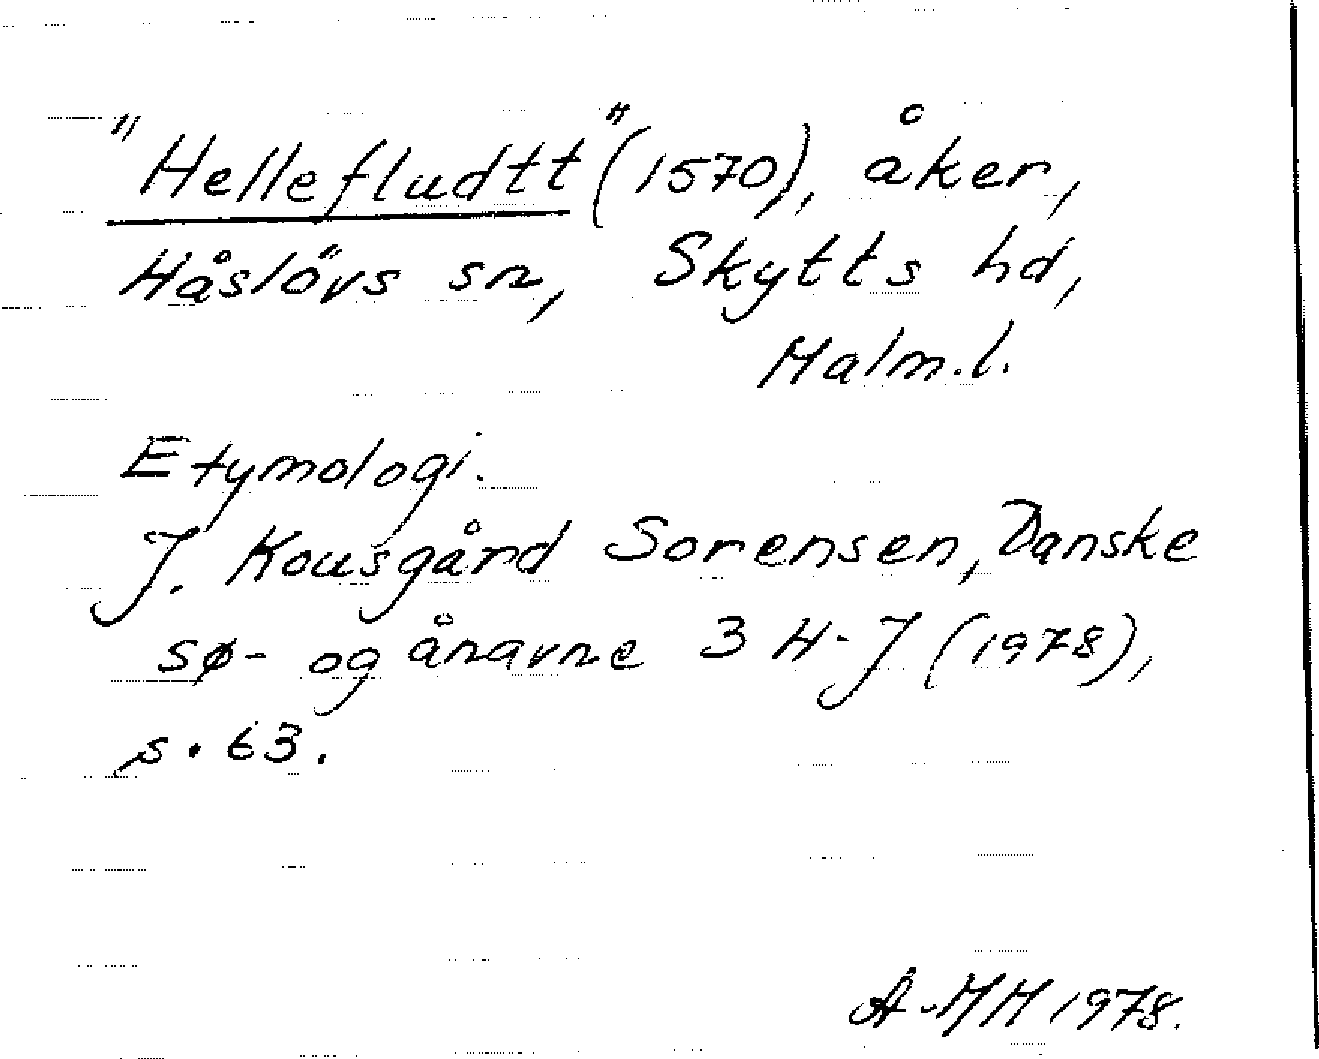 "Hellefludtt" (1570), åker,
Håslövs sn, Skytts hd,
Malm.l.
Etymologi.
J. Kousgård Sorensen, Danske
sø- og ånavne 3 H-J (1978),
s. 63.
A-MH 1978.